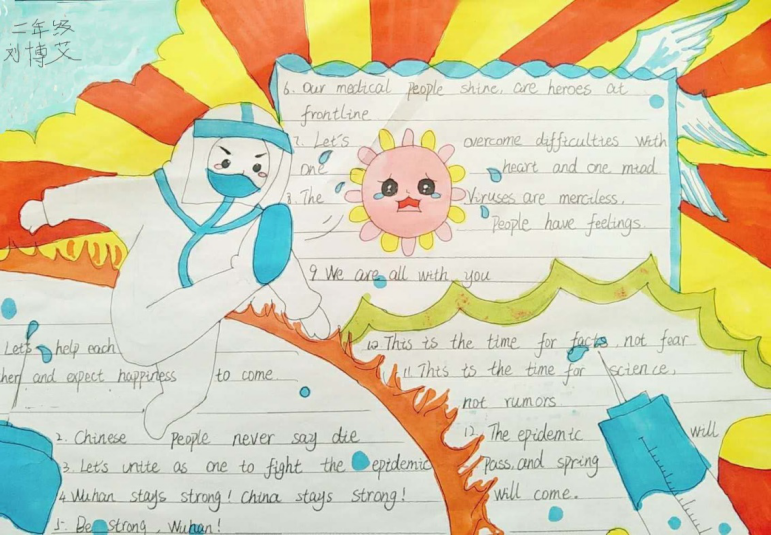 二年级
刘博艾
6. Our medical people shine, are heroes at
frontline
7. Let's overcome difficulties with
one heart and one mind
8. The Viruses are merciless,
People have feelings
9 We are all with you
Let's help each
her and expect happiness to come
2. Chinese people never say die
3. Let's unite as one to fight the epidemic
4 Wuhan stays strong! China stays strong!
5. Be strong, Wuhan!
10. This is the time for facts, not fear
11. This is the time for science,
not rumors
12. The epidemic will
pass, and spring
will come.